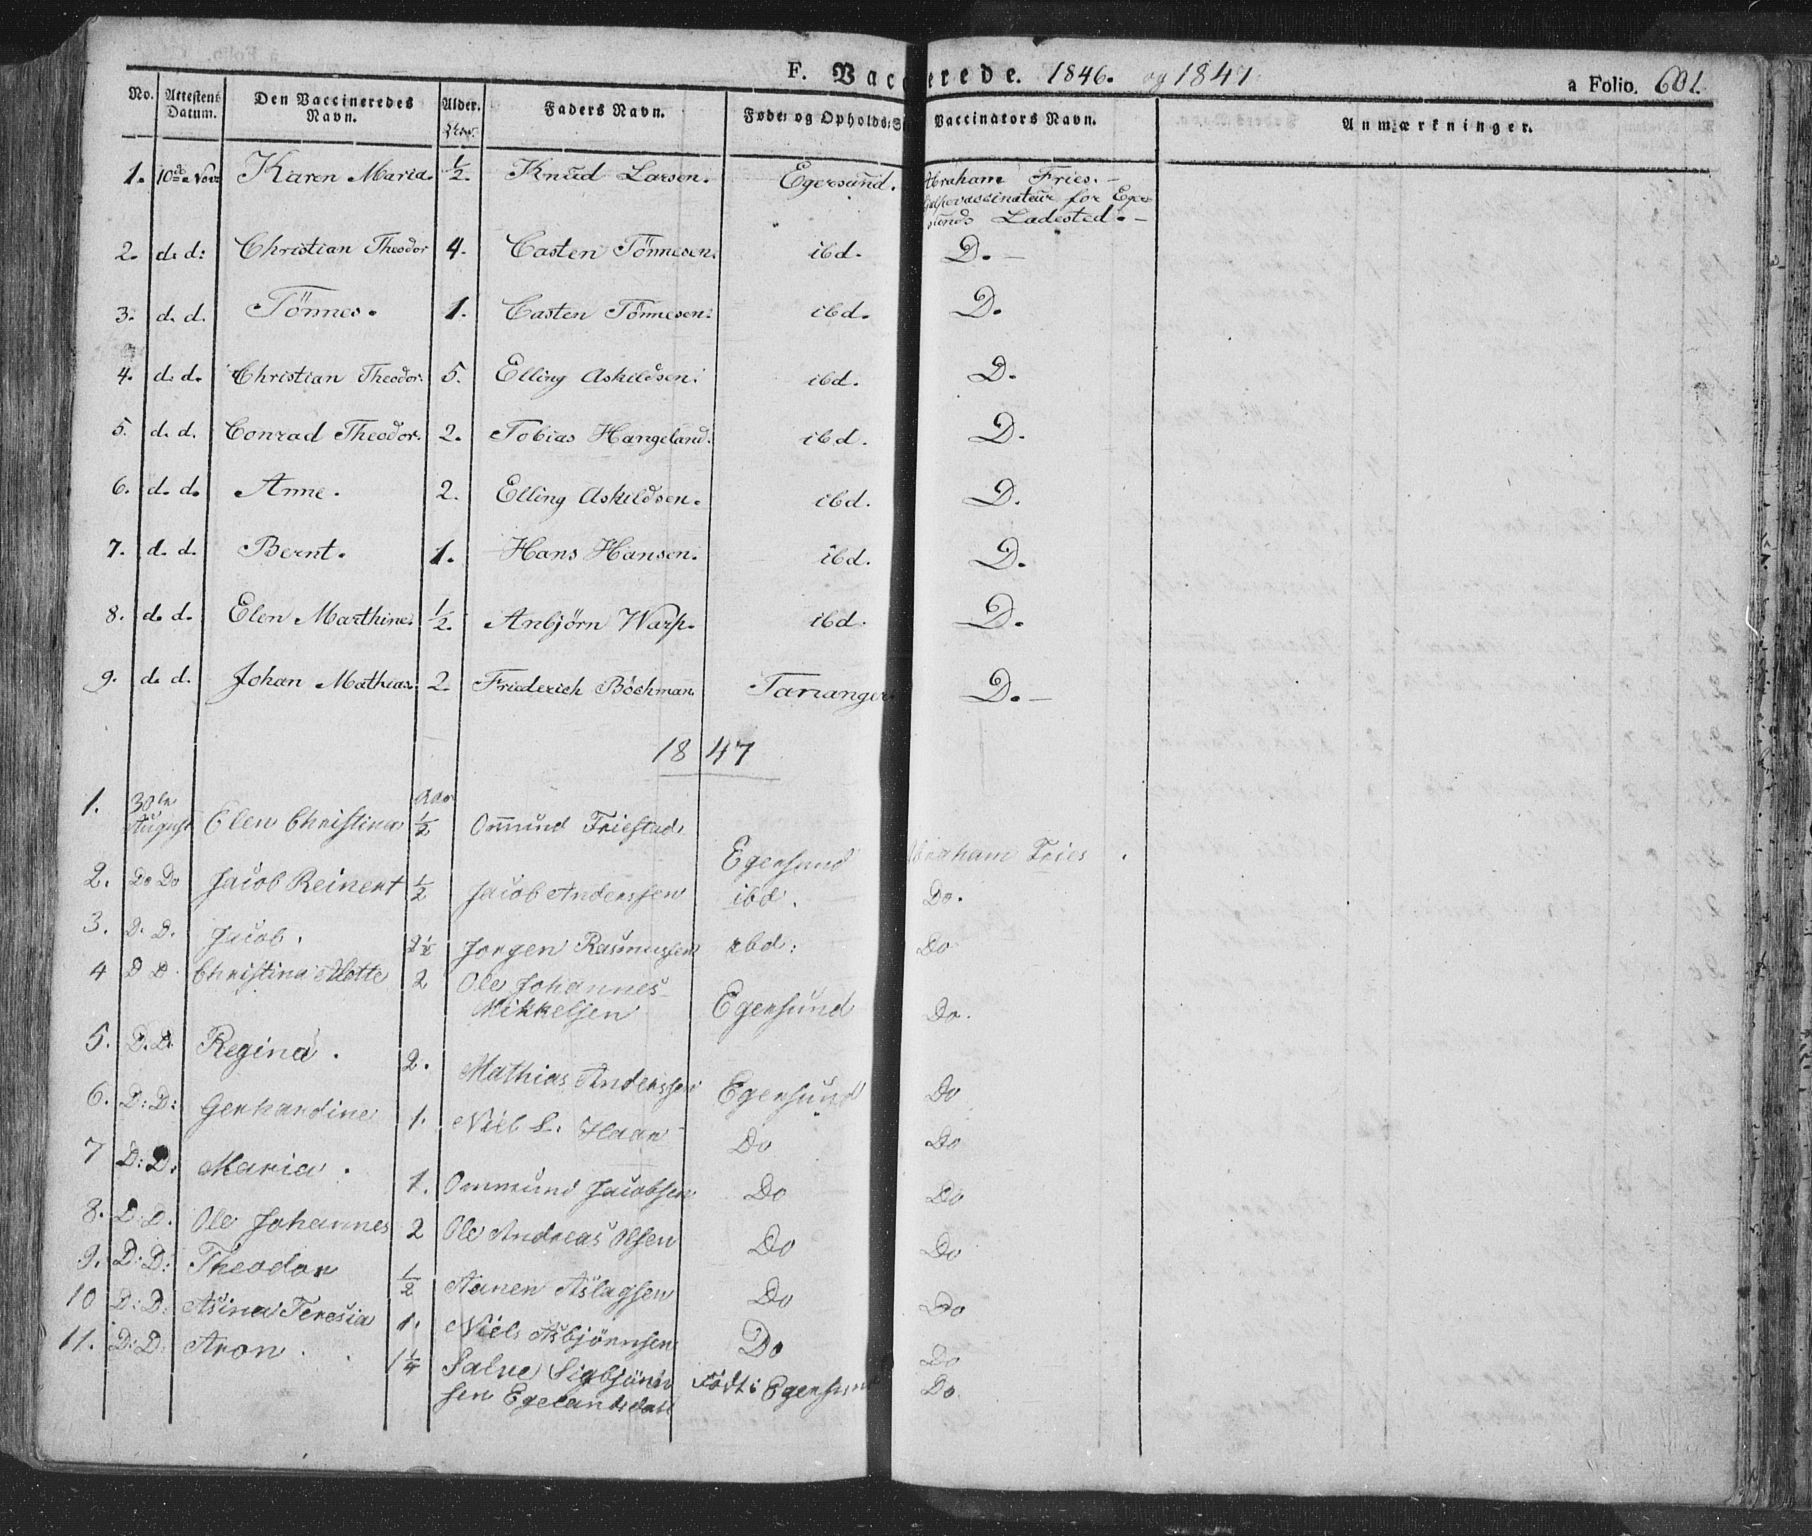 F. Vaccinerede. 1846. og 1847 a Folio. 601.
No. Attestens Datum. Den Vaccineredes Navn. Alder. Faders Navn. Føde- og Opholds-St Vaccinators Navn. Anmærkninger.
1. 10de Novr Karen Maria. ½. Knud Larsen. Egersund. Abraham Fries. –
Hjelpevaccinateur for Eger-
sunds Ladested. –
2. d. d: Christian Theodor 4. Casten Tönnesen. ibd. D. –
3. d. d. Tönnes. 1. Casten Tönnesen. ibd. D.
4. d. d. Christian Theodor. 5. Elling Askildsen. ibd. D.
5. d. d. Conrad Theodor. 2. Tobias Hangeland. ibd. D.
6. d. d. Anne. 2. Elling Askildsen. ibd. D.
7. d. d. Bernt. 1. Hans Hansen. ibd. D.
8. d. d. Elen Marthine. ½. Anbjørn Warp. ibd. D.
9. d. d. Johan Mathias. 2. Friederich Böchman. Tananger. D. –
1847
1. 30te August Elen Christina Aar ½ Ommund Friestad Egersund Abraham Fries.
2. Do Do Jacob Reinert ½ Jacob Anderssen ibd. Do.
3. D. D. Jacob. 2½ Jorgen Rasmussen ibd: Do
4 D D. Christina Alotte 2 Ole Johannes
Mikkelsen Egersund Do.
5. D. D. Regina. 2. Mathias Anderssen Egersund Do
6. D: D: Gerhardine 1. Niels L. Haar Do Do
7 D: D. Maria. 1. Ommund Jacobsen Do Do
8. D: D. Ole Johannes 2 Ole Andreas Olsen Do Do
9. D: D: Theodor ½ Aanen Aslagsen Do Do
10 D: D: Asina Teresia 1. Niels Asbjörnsen Do Do
11. D: D: Aron. 1¼ Salve Sigbjörn
sen Egelandsdal Födt i Egersund Do.